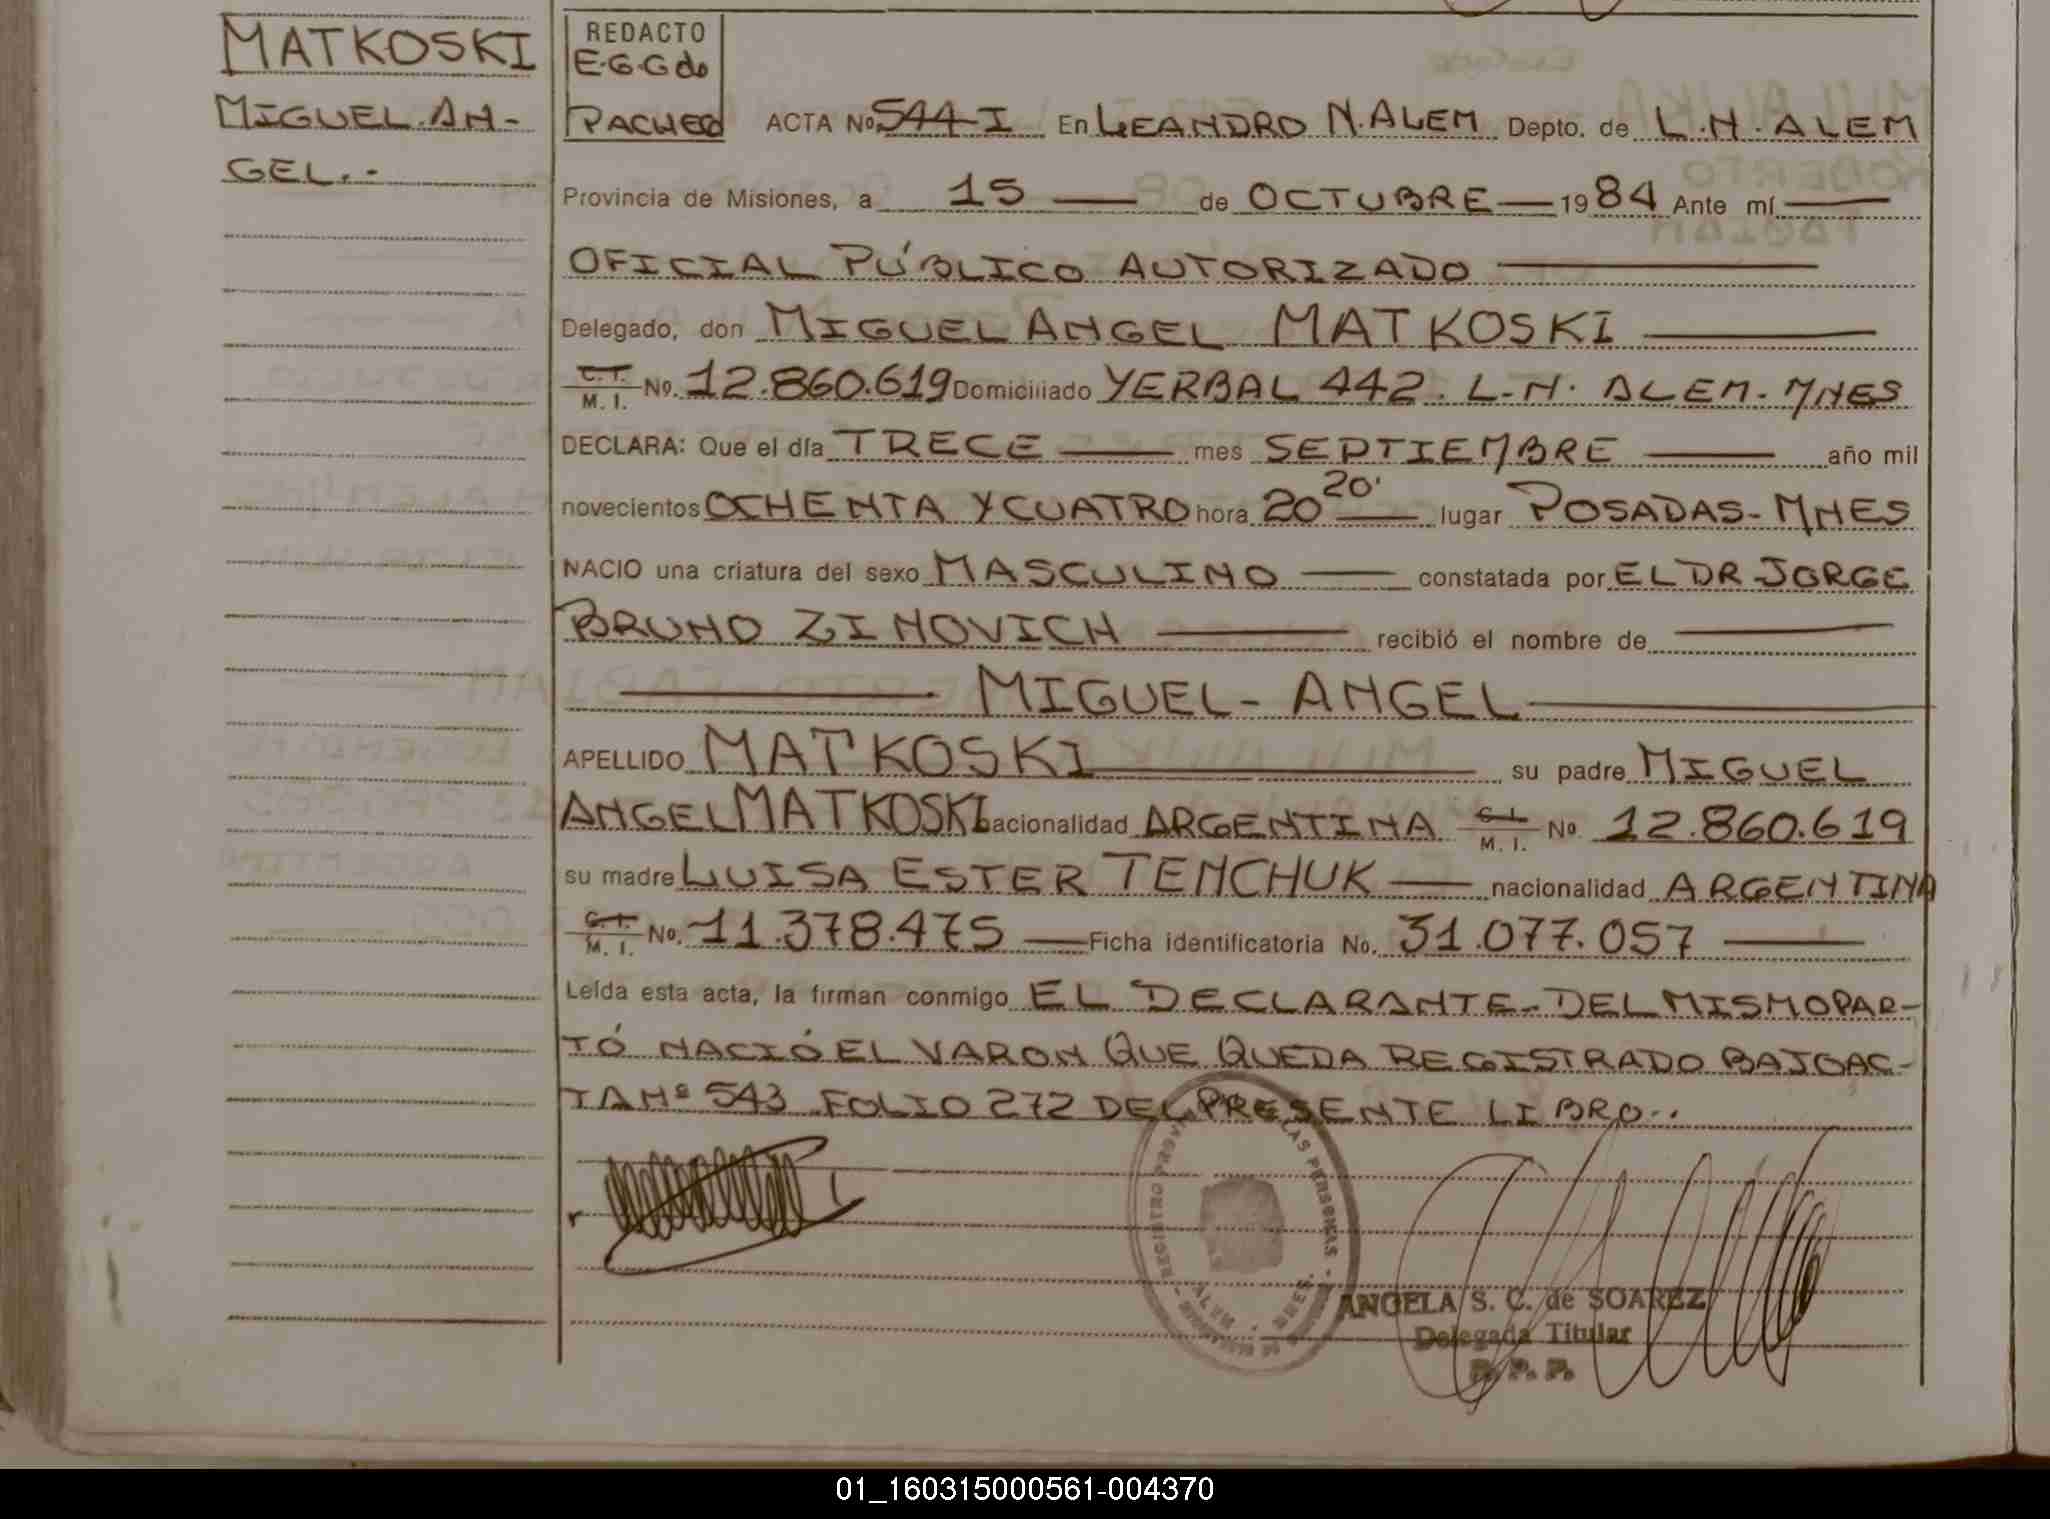 MATKOSKI
MIGUEL.AN-
GEL..-
REDACTO
E.G.G de
PACHECO
ACTA Nº 544-I En LEANDRO N.ALEM Depto. de L.N.ALEM
Provincia de Misiones, a 15 — de OCTUBRE — 1984 Ante mí —
OFICIAL PÚBLICO AUTORIZADO —
Delegado, don MIGUEL ANGEL MATKOSKI —
C.I. M. I. Nº. 12.860.619 Domiciliado YERBAL 442. L.N. ALEM. MNES
DECLARA: Que el día TRECE — mes SEPTIEMBRE — año mil
novecientos OCHENTA Y CUATRO hora 20 20' — lugar POSADAS-MNES
NACIO una criatura del sexo MASCULINO — constatada por EL DR JORGE
BRUNO ZINOVICH — recibió el nombre de —
— MIGUEL-ANGEL —
APELLIDO MATKOSKI — su padre MIGUEL
ANGEL MATKOSKI nacionalidad ARGENTINA C.I. M. I. Nº. 12.860.619
su madre LUISA ESTER TENCHUK — nacionalidad ARGENTINA
C.I. M. I. Nº. 11.378.475 — Ficha identificatoria No. 31.077.057 —
Leída esta acta, la firman conmigo EL DECLARANTE-DEL MISMO PAR-
TÓ NACIÓ EL VARON QUE QUEDA REGISTRADO BAJO AC-
TA Nº 543 FOLIO 272 DEL PRESENTE LIBRO..
REGISTRO LAS PERSONAS
ALEM - MNES.
ANGELA S. C. de SOAREZ
Delegada Titular
R. P. P.
01_160315000561-004370